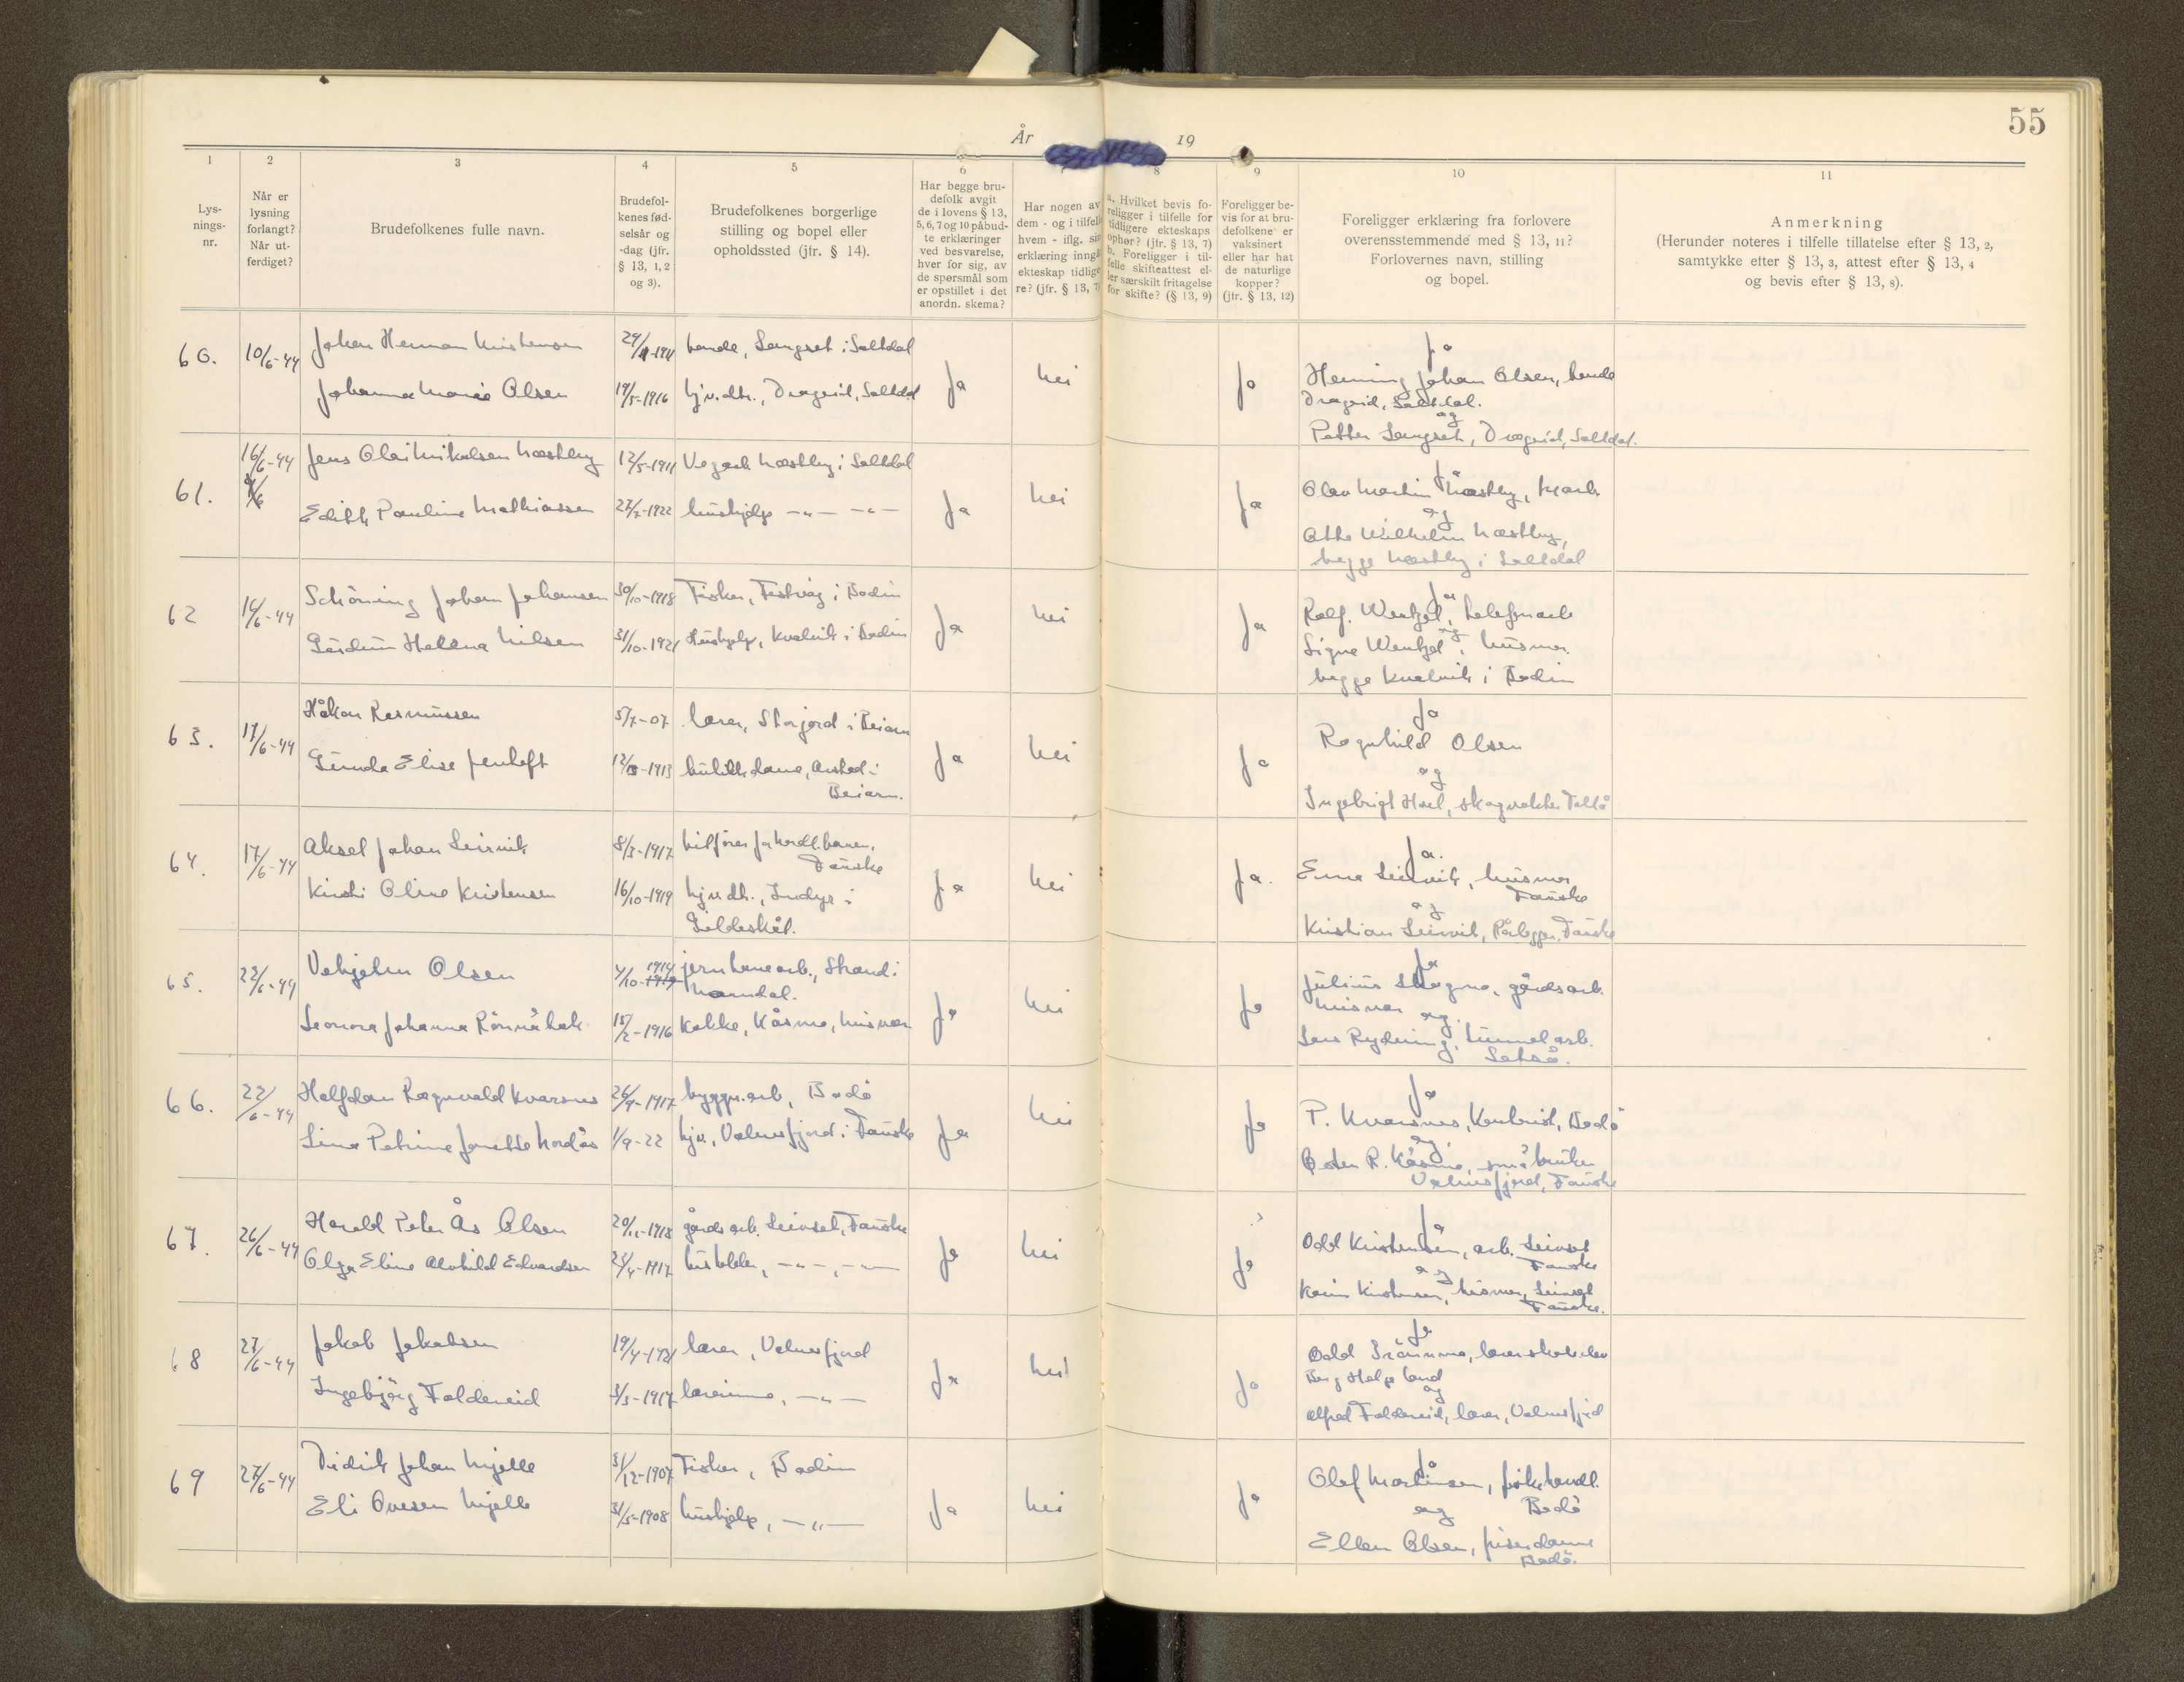 55
År 19
1 2 3 4 5 6 8 9 10 11
Lys-
nings-
nr.
Når er
lysning
forlangt?
Når ut-
ferdiget?
Brudefolkenes fulle navn.
Brudefol-
kenes fød-
selsår og
-dag (jfr.
§ 13, 1, 2
og 3).
Brudefolkenes borgerlige
stilling og bopel eller
opholdssted (jfr. § 14).
Har begge bru-
defolk avgit
de i lovens § 13,
5, 6, 7 og 10 påbud-
te erklæringer
ved besvarelse,
hver for sig, av
de spørsmål som
er opstillet i det
anordn. skema?
Har nogen av
dem - og i tilfelle
hvem - iflg. sin
erklæring inngått
ekteskap tidlige-
re? (jfr. § 13, 7)
a. Hvilket bevis fo-
religger i tilfelle for
tidligere ekteskaps
ophør? (jfr. § 13, 7)
b. Foreligger i til-
felle skifteattest el-
ler særskilt fritagelse
for skifte? (§ 13, 9)
Foreligger be-
vis for at bru-
defolkene er
vaksinert
eller har hat
de naturlige
kopper?
(jfr. § 13, 12)
Foreligger erklæring fra forlovere
overensstemmende med § 13, 11?
Forlovernes navn, stilling
og bopel.
Anmerkning
(Herunder noteres i tilfelle tillatelse efter § 13, 2,
samtykke efter § 13, 3, attest efter § 13, 4
og bevis efter § 13, 8).
60. 10/6-44 Johan Herman Kristensen bonde, Langset i Saltdal
Johanna Marie Olsen 19/5-1916 hjv. dtr., Drageid, Saltdal
Ja Nei Ja
Ja
Henning Johan Olsen, bonde
Drageid, Saltdal.
og
Petter Langset, Drageid, Saltdal.
61. 16/6-44 Jens Olai Mikalsen Næstby 12/5-1911 Vegarb. Næstby i Saltdal
Edith Pauline Mathiassen 27/7-1922 hushjelp -"- -"-
Ja Nei Ja
Ja
Olav Martin Næstby,
og
Otto Wilhelm Næstby,
begge Næstby i Saltdal
62 16/6-44 Schöning Johan Johansen 30/10-1918 Fisker, Festvåg i Bodin
Gudrun Helena Nilsen 31/10-1921 Hushjelp, Kvalvik i Bodin
Ja Nei Ja
Ja
Rolf. Wenkjel, telefonarb
og
Signe Wenkjel, husmor
begge Kvalvik i Bodin
63. 17/6-44 Håkon Rasmussen 5/7-07 lærer, Storjord i Beiarn
Gunda Elise Jenhaft butikkdame, Arstad i
Beiarn.
Ja Nei Ja
Ja
Ragnhild Olsen
og
Ingebrigt Hoel, skogvokter Tollå
64. 17/6-44 Aksel Johan Leirvik 8/3-1917 bilfører for Nordl.banen,
Fauske
Kirsti Oline Kristensen 16/10-1919 hjv. dtr., Indyr i
Gildeskål.
Ja Nei Ja.
Ja.
Erna Leirvik, husmor
Fauske
og
Kristian Leirvik, Rørlegger, Fauske
65. 22/6-44 Vehjelm Olsen 4/10-1914 jernbanearb., Strand i
Leonora Johanna Rönnåbak 15/2-1916 Kokke, Kåsmo,
Ja Nei Ja
Ja
Julius Skagmo, gårdsarb.
og
Lars Rydning, tunnelarb.
66. 22/6-44 Halfdan Ragnvald Kvarsnes 26/9-1917 byggn.arb, Bodö
Lina Petrine Jonette Nordås 1/9-22 hjv., Valnesfjord i Fauske
Ja Nei Ja
Ja
P. Kvarsnes, Kontorist, Bodö
og
Peder R. Kåsmo, småbruker
Valnesfjord, Fauske
67. 26/6-44 Harald Peter Ås Olsen 20/11-1918 gårdsarb. Leivset, Fauske
Olga Eline Alvhild Edvardsen 23/4-1917 -"-, -"-
Ja Nei Ja
Ja
Odd Kristensen, arb. Leivset
Fauske
og
Karin Kristensen, husmor, Leivset
Fauske.
68 27/6-44 Jakob Jakobsen 19/4-1921 lærer, Valnesfjord
Ingebjörg Foldereid 3/3-1917 lærerinne, -"-
Ja Nei Ja
Ja
Odd Brånmo, lærerskoleelev
Berg Helgeland
og
Alfred Foldereid, lærer, Valnesfjord
69 27/6-44 Didrik Johan Mjelle 31/12-1907 Fisker, Bodin
Eli Ovesen Mjelle 31/5-1908 hushjelp, -"-
Ja Nei Ja
Ja
Olaf Martinsen, fiskehandl.
og Bodö
Ellen Olsen, frisørdame
Bodö.